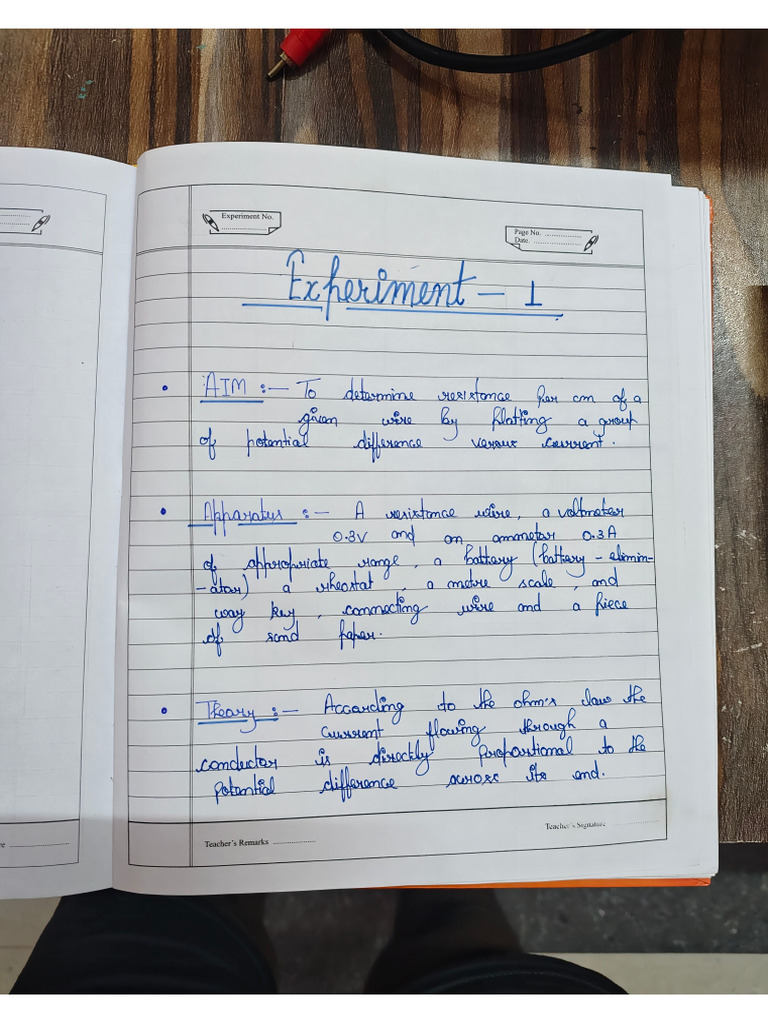 Experiment No.
Page No.
Date.
Experiment - 1
• AIM :- To determine resistance per cm of a
given wire by plotting a group
of potential difference verous current.
• Apparatus :- A resistance wire, a voltmeter
0.3V and an ammeter 0.3A
of appropriate range, a battery (battery - elimin-
-ator) a rheostat, a metre scale, and
way key, connecting wire and a piece
of sand paper.
• Theory :- According to the ohm's law the
current flowing through a
conductor is directly proportional to the
potential difference across its end.
Teacher's Signature
Teacher's Remarks